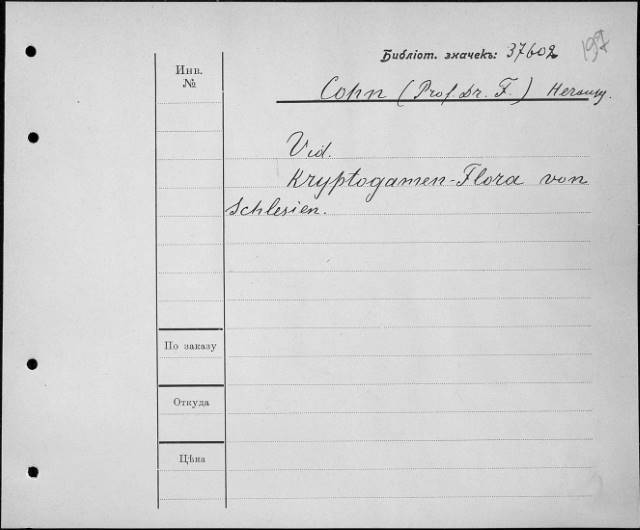 Библіот. значекъ: 37602
197
Инв.
№
Cohn (Prof. Dr. F.) Herausg.
Vid.
Kryptogamen-Flora von
Schlesien.
По заказу
Откуда
Цѣна